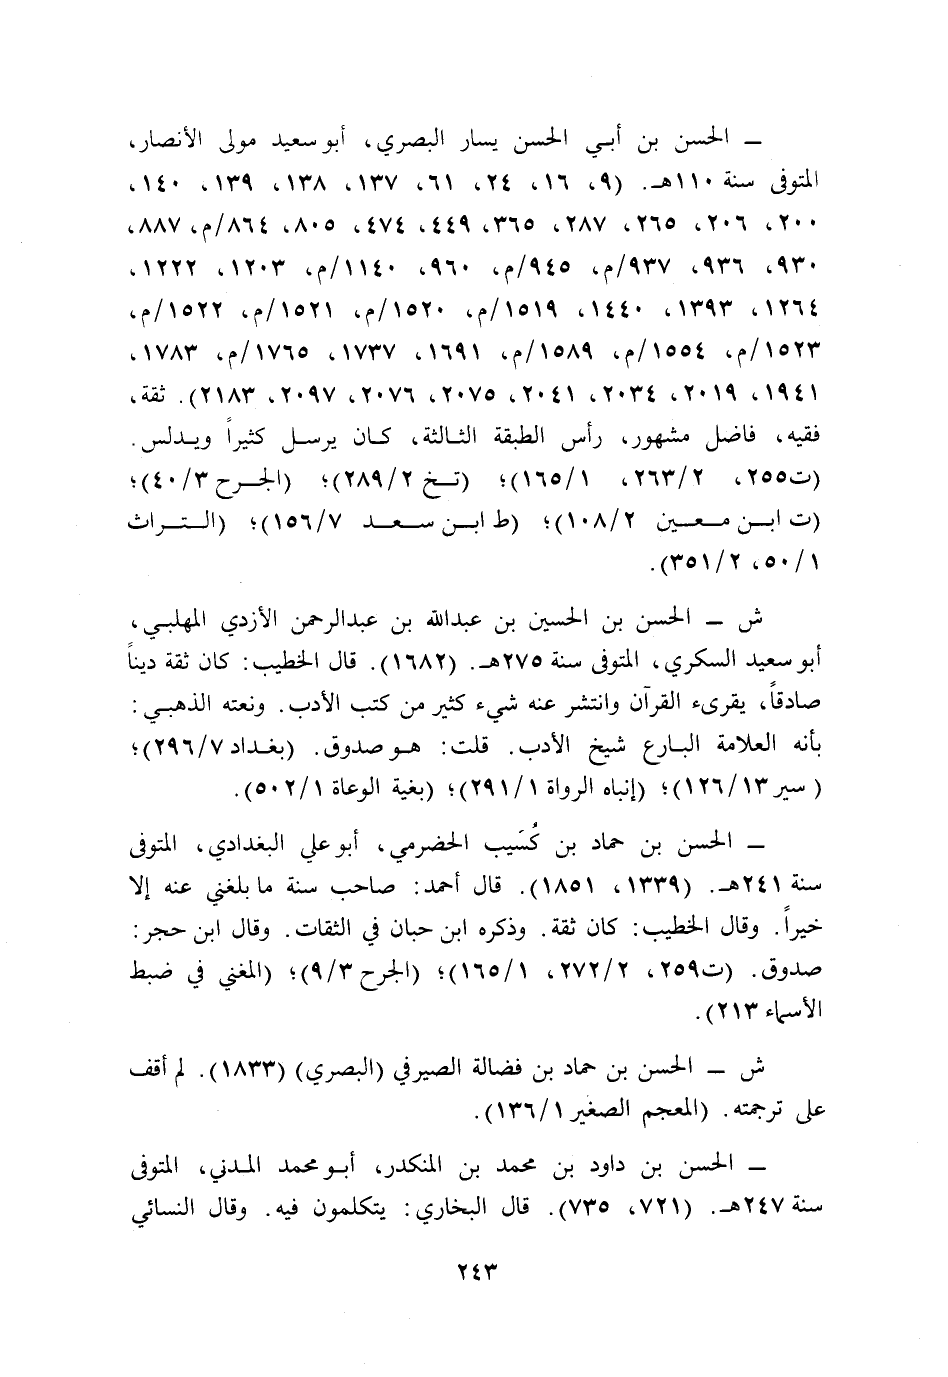 ــ الحسن بن أبي الحسن يسار البصري، أبو سعيد مولى الأنصار،
المتوفى سنة ١١٠هـ. (٩، ١٦، ٢٤، ٦١، ١٣٧، ١٣٨، ١٣٩، ١٤٠،
٢٠٠، ٢٠٦، ٢٦٥، ٢٨٧، ٣٦٥، ٤٤٩، ٤٧٤، ٨٠٥، ٨٦٤/م، ٨٨٧،
٩٣٠، ٩٣٦، ٩٣٧/م، ٩٤٥/م، ٩٦٠، ١١٤٠/م، ١٢٠٣، ١٢٢٢،
١٢٦٤، ١٣٩٣، ١٤٤٠، ١٥١٩/م، ١٥٢٠/م، ١٥٢١/م، ١٥٢٢/م،
١٥٢٣/م، ١٥٥٤/م، ١٥٨٩/م، ١٦٩١، ١٧٣٧، ١٧٦٥/م، ١٧٨٣،
١٩٤١، ٢٠١٩، ٢٠٣٤، ٢٠٤١، ٢٠٧٥، ٢٠٧٦، ٢٠٩٧، ٢١٨٣). ثقة،
فقيه، فاضل مشهور، رأس الطبقة الثالثة، كان يرسل كثيراً ويدلس.
(ت٢٥٥، ٢٦٣/٢، ١٦٥/١)؛ (تـخ ٢٨٩/٢)؛ (الجـرح ٤٠/٣)؛
(ت ابـن مـعـين ١٠٨/٢)؛ (ط ابـن سـعـد ١٥٦/٧)؛ (الـتـراث
٥٠/١، ٣٥١/٢).
ش ــ الحسن بن الحسين بن عبدالله بن عبدالرحمن الأزدي المهلبي،
أبو سعيد السكري، المتوفى سنة ٢٧٥هـ. (١٦٨٢). قال الخطيب: كان ثقة ديناً
صادقاً، يقرىء القرآن وانتشر عنه شيء كثير من كتب الأدب. ونعته الذهبي:
بأنه العلامة البارع شيخ الأدب. قلت: هو صدوق. (بغداد ٢٩٦/٧)؛
(سير ١٢٦/١٣)؛ (إنباه الرواة ٢٩١/١)؛ (بغية الوعاة ٥٠٢/١).
ــ الحسن بن حماد بن كُسَيب الحضرمي، أبو علي البغدادي، المتوفى
سنة ٢٤١هـ. (١٣٣٩، ١٨٥١). قال أحمد: صاحب سنة ما بلغني عنه إلا
خيراً. وقال الخطيب: كان ثقة. وذكره ابن حبان في الثقات. وقال ابن حجر:
صدوق. (ت٢٥٩، ٢٧٢/٢، ١٦٥/١)؛ (الجرح ٩/٣)؛ (المغني في ضبط
الأسماء ٢١٣).
ش ــ الحسن بن حماد بن فضالة الصيرفي (البصري) (١٨٣٣). لم أقف
على ترجمته. (المعجم الصغير ١٣٦/١).
ــ الحسن بن داود بن محمد بن المنكدر، أبو محمد المدني، المتوفى
سنة ٢٤٧هـ. (٧٢١، ٧٣٥). قال البخاري: يتكلمون فيه. وقال النسائي
٢٤٣